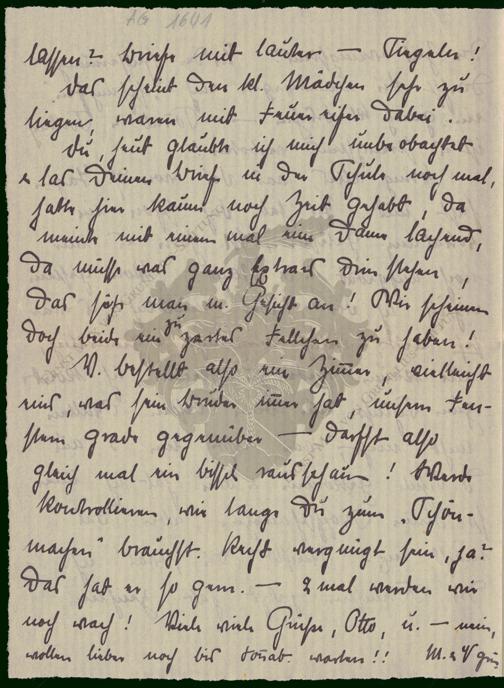 AG 1641
lassen? Briefe mit lauter — Siegeln!
Das scheint den kl. Mädchen sehr zu
liegen, waren mit Feuereifer dabei.
Du, heut glaubte ich mich unbeobachtet
u las Deinen Brief in der Schule noch mal,
hatte hier kaum noch Zeit gehabt, da
meinte mit einem mal eine Dame lachend,
da müsse was ganz Extraes drin stehen,
das säh man m. Gesicht an! Wir scheinen
doch beide ein zu zartes Fellchen zu haben!
V. bestellt also ein Zimmer, vielleicht
eins, was sein Bruder immer hat, unserm Fen-
stern grade gegenüber — darfst also
gleich mal ein bissel rausschaun! Werde
kontrollieren, wie lange Du zum „Schön-
machen" brauchst. Recht vergnügt sein, ja?
Das hat er so gern. — 2 mal werden wir
noch wach! Viele viele Grüße, Otto, u. — nein,
wollen lieber noch bis Sonab. warten!! M. u V